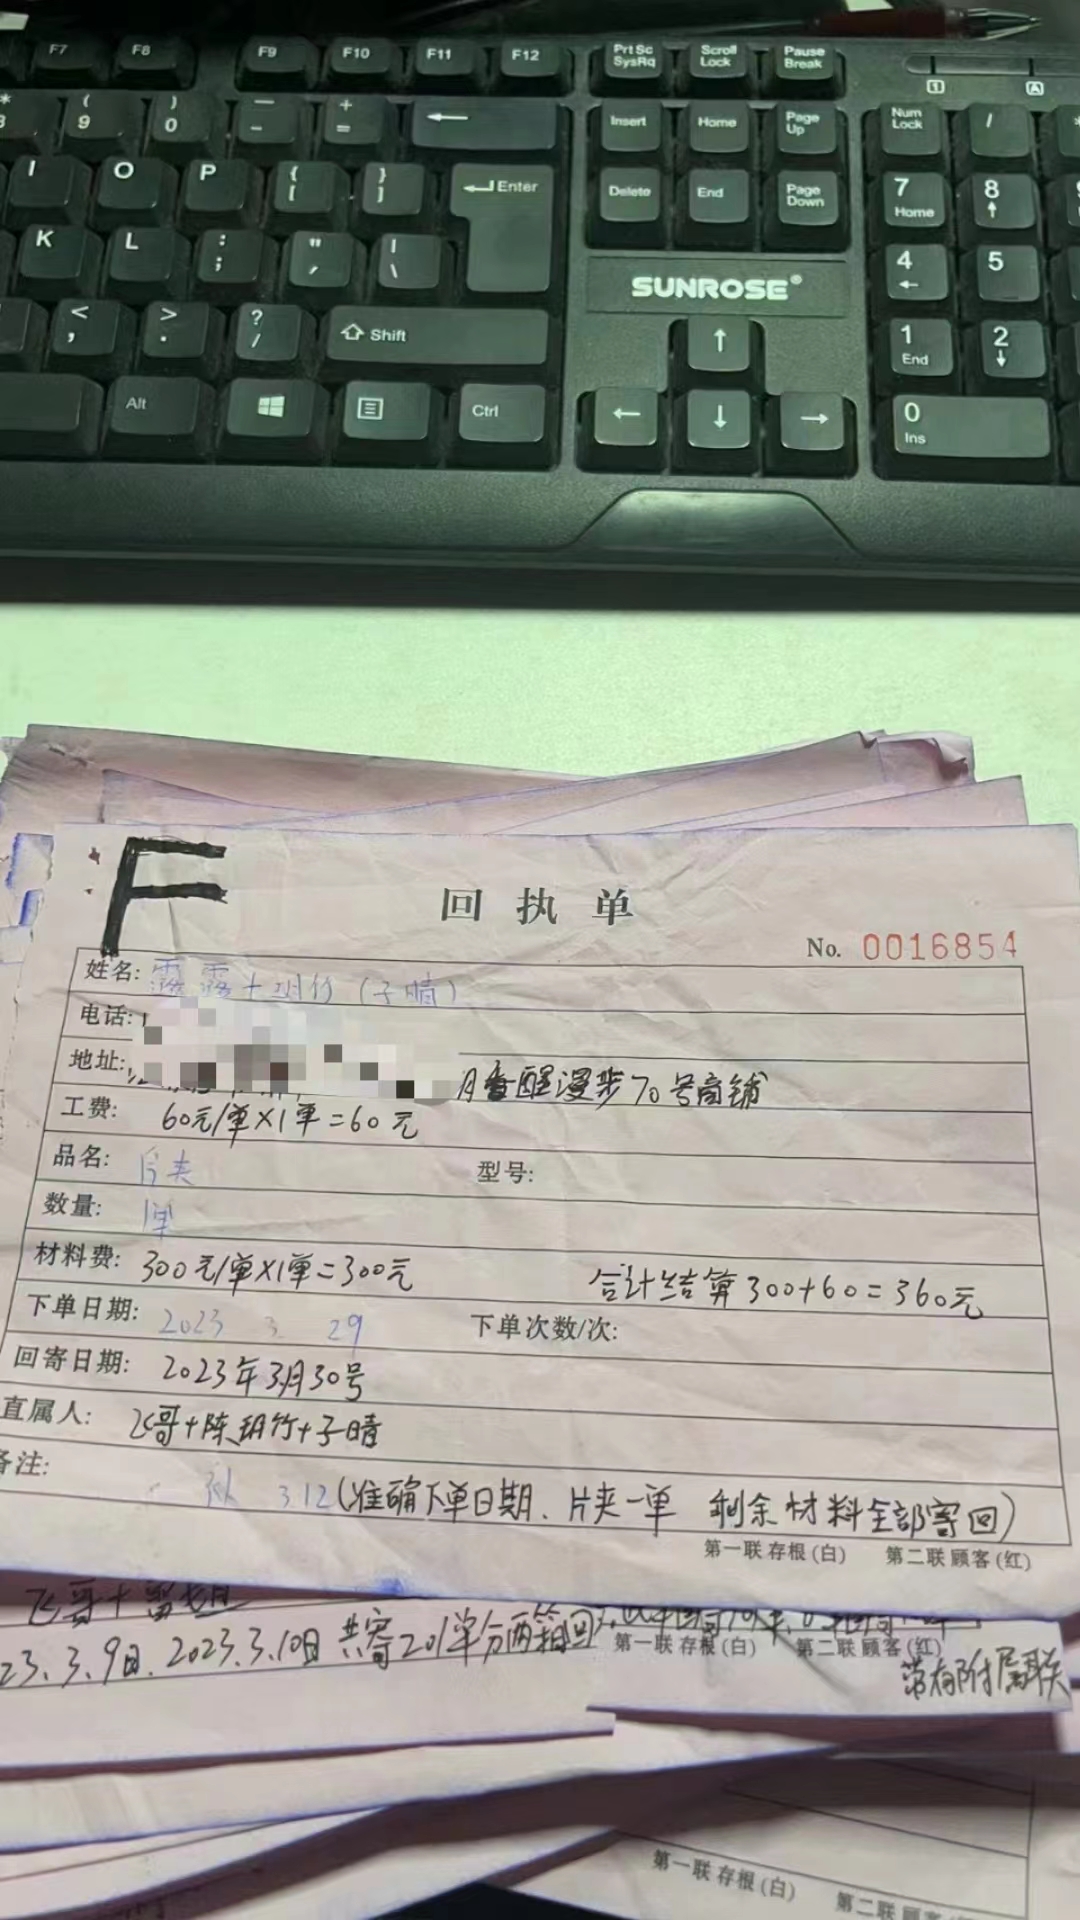 F7 F8 F9 F10 F11 F12 Prt Sc SysRq Scroll Lock Pause Break
( 9 ) 0 — - + = Insert Home Page Up Num Lock /
I O P { [ } ] Enter Delete End Page Down 7 Home 8
K L : ; " ' | \ 4 5
SUNROSE®
< , > . ? / Shift 1 End 2
Alt Ctrl 0 Ins
F
回执单
No. 0016854
姓名: 露露+玥竹(子晴)
电话:
地址: 月香醒漫步70号商铺
工费: 60元/单×1单=60元
品名: 片夹 型号:
数量: 1单
材料费: 300元/单×1单=300元 合计结算300+60=360元
下单日期: 2023 3 29 下单次数/次:
回寄日期: 2023年3月30号
直属人: 飞哥+陈玥竹+子晴
备注:
312(准确下单日期、片夹一单 剩余材料全部寄回)
第一联 存根(白) 第二联 顾客(红)
飞哥+
23.3.9日、2023.3.10日 共寄201单分两箱回
第一联 存根(白) 第二联 顾客(红)
带有附属联
第一联 存根(白) 第二联 顾客